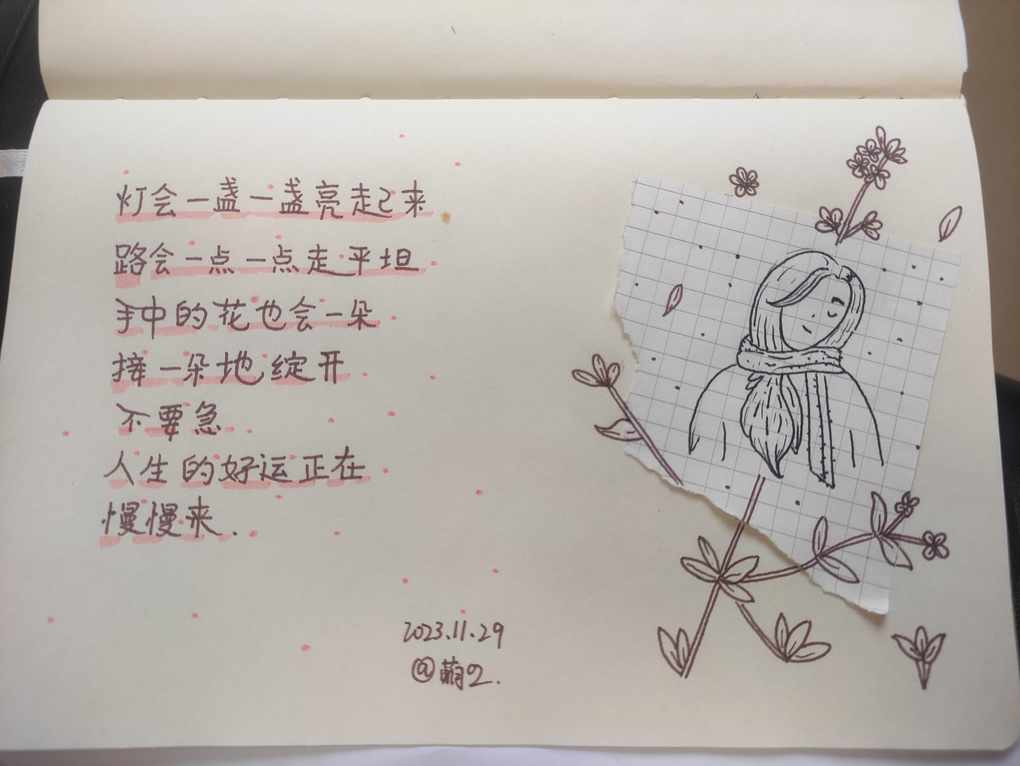 灯会一盏一盏亮起来
路会一点一点走平坦
手中的花也会一朵
接一朵地绽开
不要急
人生的好运正在
慢慢来.
2023.11.29
@萌